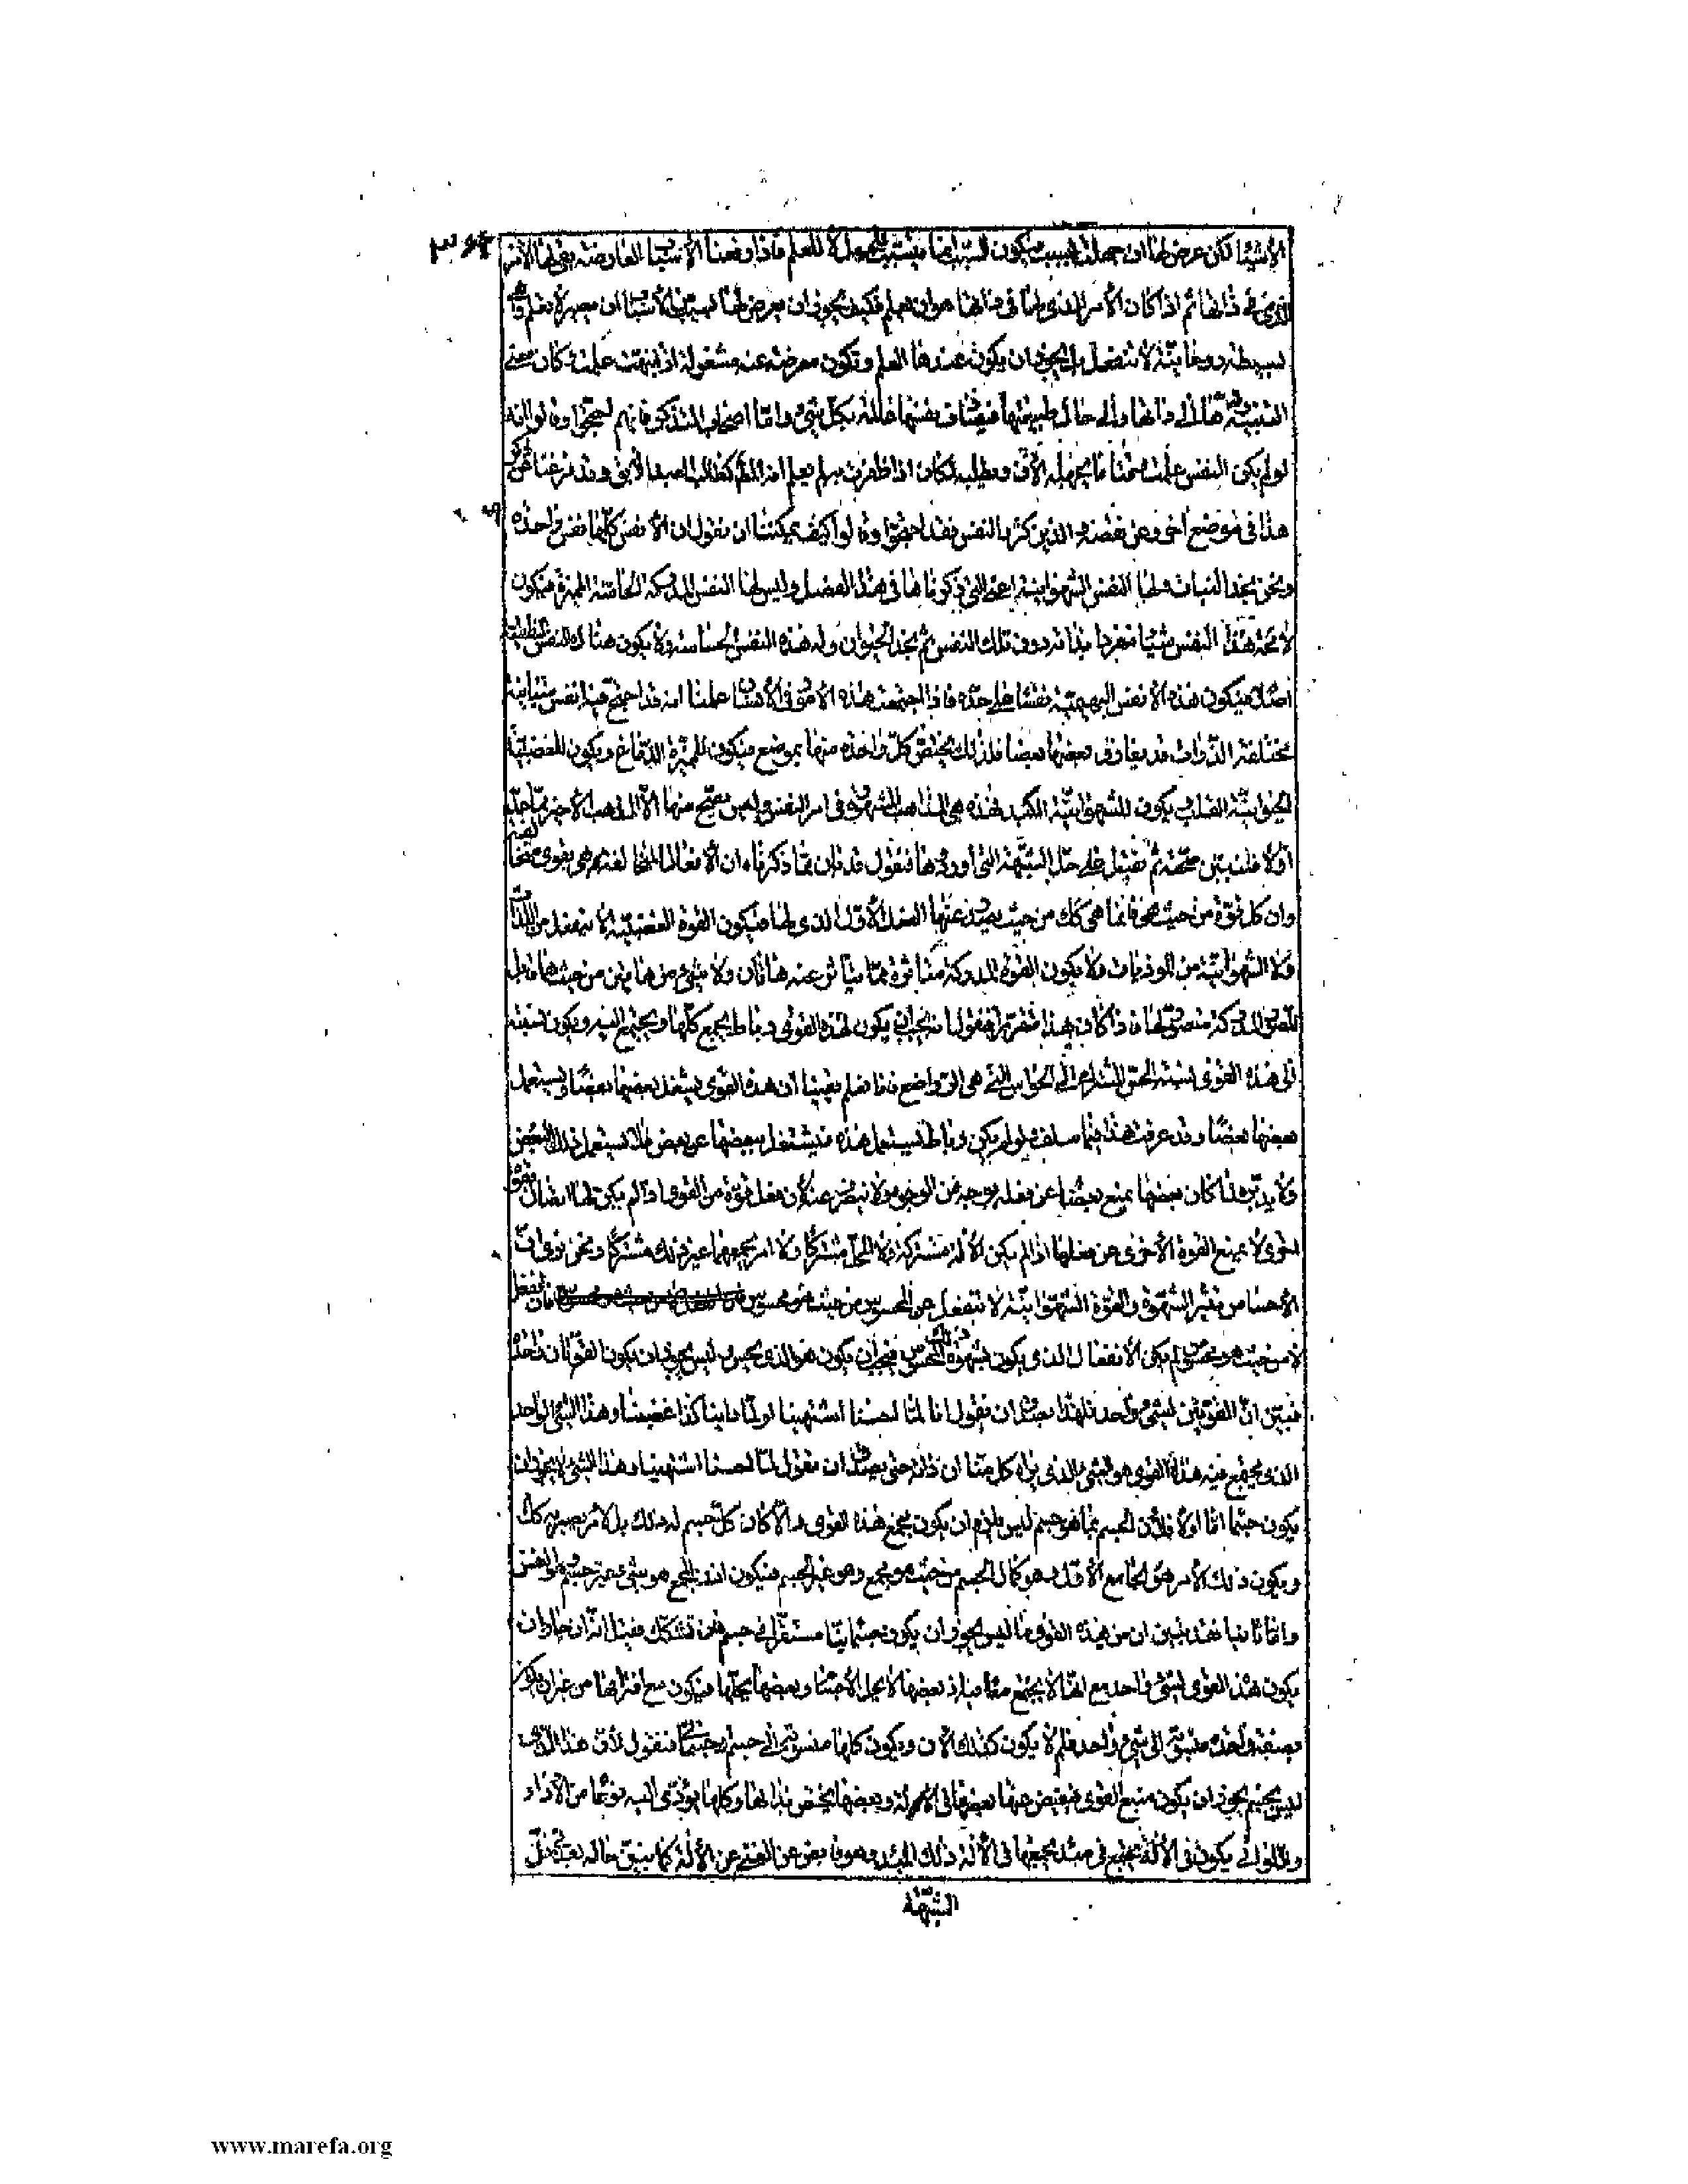 الأشياء لكن عرض لها ان جهلت بسبب فيكون السبب انما يتسبب للجهل لا للعلم فاذا رفعنا الأسباب العارضة بقى لها الأمر
الذى فى ذاتها ثم اذا كان الأمر الذى لها فى ذاتها هو ان يعلم فكيف يجوز ان يعرض لها بسبب من الأسباب ان يصير لا تعلم وهى
بسيطة روحانية لا تنفعل بل يجوز ان يكون عندها العلم وتكون معرضة عنه مشغولة اذا نبهت علمت وكان معنى
التنبيه ردها الى ذاتها والى حال طبيعتها فيصادف نفسها عالمة بكل شىء واما اصحاب التذكر فانهم احتجوا وقالوا انه
لو لم يكن النفس علمت وقتا ما يجهله الآن ويطلبه لكان اذا ظفرت به لم يعلم انه المطلوب كطالب العبد الآبق وقد فرغنا عن ذكر
هذا فى موضع آخر وعن نقضه والذين كثروا النفس فقد احتجوا وقالوا كيف يمكننا ان نقول ان الأنفس كلها نفس واحدة
ونحن نجد النبات ولها النفس الشهوانية اعنى التى ذكرناها فى هذا الفصل وليس لها النفس المدركة الحاسة المميزة فيكون
لا محة هذا النفس شيئا منفردا بذاته دون تلك النفس ثم نجد الحيوان وله هذه النفس الحساسة ولا يكون هناك النفس النطقية
اصلا فيكون هذه الأنفس البهيمية نفسا على حدة فاذا اجتمعت هذه الأمور فى الأنسان علمنا انه قد اجتمع فيه انفس متباينة
مختلفة الذوات قد يفارق بعضها بعضا فلذلك يختص كل واحدة منها بموضع فيكون للمميزة الدماغ ويكون للغضبية
الحيوانية القلب ويكون للشهوانية الكبد فهذه هى المذاهب المشهورة فى امر النفس وليس يصح منها الا المذهب الأخير مما عد
اولا فلنبين صحته ثم نقبل على حل الشبهة التى اوردوها فنقول قد بان مما ذكرناه ان الأفعال المتخالفة هى بقوى متخالفة
وان كل قوة من حيث هى فانما هى كك من حيث يصدر عنها الفعل الأول الذى لها فيكون القوة الغضبية لا ينفعل من اللذات
ولا الشهوانية من الموذيات ولا يكون القوة المدركة متأثرة مما يتأثر عنه هاتان ولا شىء من هاتين من حيث ها قابل
للصور المدركة متصور لها فاذا كان هذا متقررا فنقول انه يجب ان يكون لهذه القوى رباط يجمع كلها ويجتمع اليه ويكون نسبته
الى هذه القوى نسبة الحس المشترك الى الحواس التى هى الرواضع فانا نعلم يقينا ان هذه القوى يشغل بعضها بعضا ويستعمل
بعضها بعضا وقد عرفت هذا فيما سلف ولو لم يكن رباط يستعمل هذه فيشتغل ببعضها عن بعض فلا يستعمل ذلك البعض
ولا يدبره لما كان بعضها يمنع بعضا عن فعله بوجه من الوجوه ولا ينصرف عنه لأن فعل قوة من القوى اذا لم يكن لها اتصال بقوة
اخرى لا يمنع القوة الأخرى عن فعلها اذا لم يكن الآلة مشتركة ولا المحل مشتركا ولا امر يجمعهما غير ذلك مشتركا ونحن نرى ان
الأحساس يثير الشهوة والقوة الشهوانية لا تنفعل عن المحسوس من حيث هو محسوس فان انفعل
لا من حيث هو محسوس لم يكن الأنفعال الذى يكون لشهوة ذلك المحسوس فيجب ان يكون هو الذى يحس وليس يجوز ان يكون القوتان واحدة
فبين ان القوتين لشىء واحد فلهذا يصدق ان نقول انا لما احسسنا اشتهينا او لما رأينا كذا غضبنا وهذا الشىء الواحد
الذى يجتمع فيه هذه القوى هو الشىء الذى يراه كل منا ان ذاته حتى يصدق ان نقول لما احسسنا اشتهينا وهذا الشىء لا يجوز ان
يكون جسما اما اولا فلأن الجسم بما هو جسم ليس يلزم ان يكون مجمع هذه القوى والا كان كل جسم له ذلك بل لأمر يصير به كك
ويكون ذلك الأمر هو الجامع الأول وهو كمال الجسم من حيث هو مجمع وهو غير الجسم فيكون اذن المجمع هو شىء غير جسم وهو النفس
واما ثانيا فقد تبين ان من هذه القوى ما ليس يجوز ان يكون جسمانيا مستقرا فى جسم فان تشكك فقيل انه ان جاز ان
يكون هذه القوى لشىء واحد مع انها لا يجتمع معا فيه اذ بعضها لا يحل الأجسام وبعضها يحلها فيكون مع افتراقها من غير ان يكون
بصفة واحدة منسوبة الى شىء واحد فلم لا يكون كذلك الآن ويكون كلها منسوبة الى جسم او جسمانى فنقول لأن هذا الذى
ليس بجسم يجوز ان يكون منبع القوى فيفيض عنها بعضها فى الآلة وبعضها يختص بذاتها وكلها يؤدى اليه نوعا من الأداء
واللواتى يكون فى الآلة تجتمع فى مبدء يجمعها فى الآلة ذلك المبدء وهو فائض عن الغنى عن الآلة كما يتبين حاله بعد فى حل
الشبهة
www.marefa.org